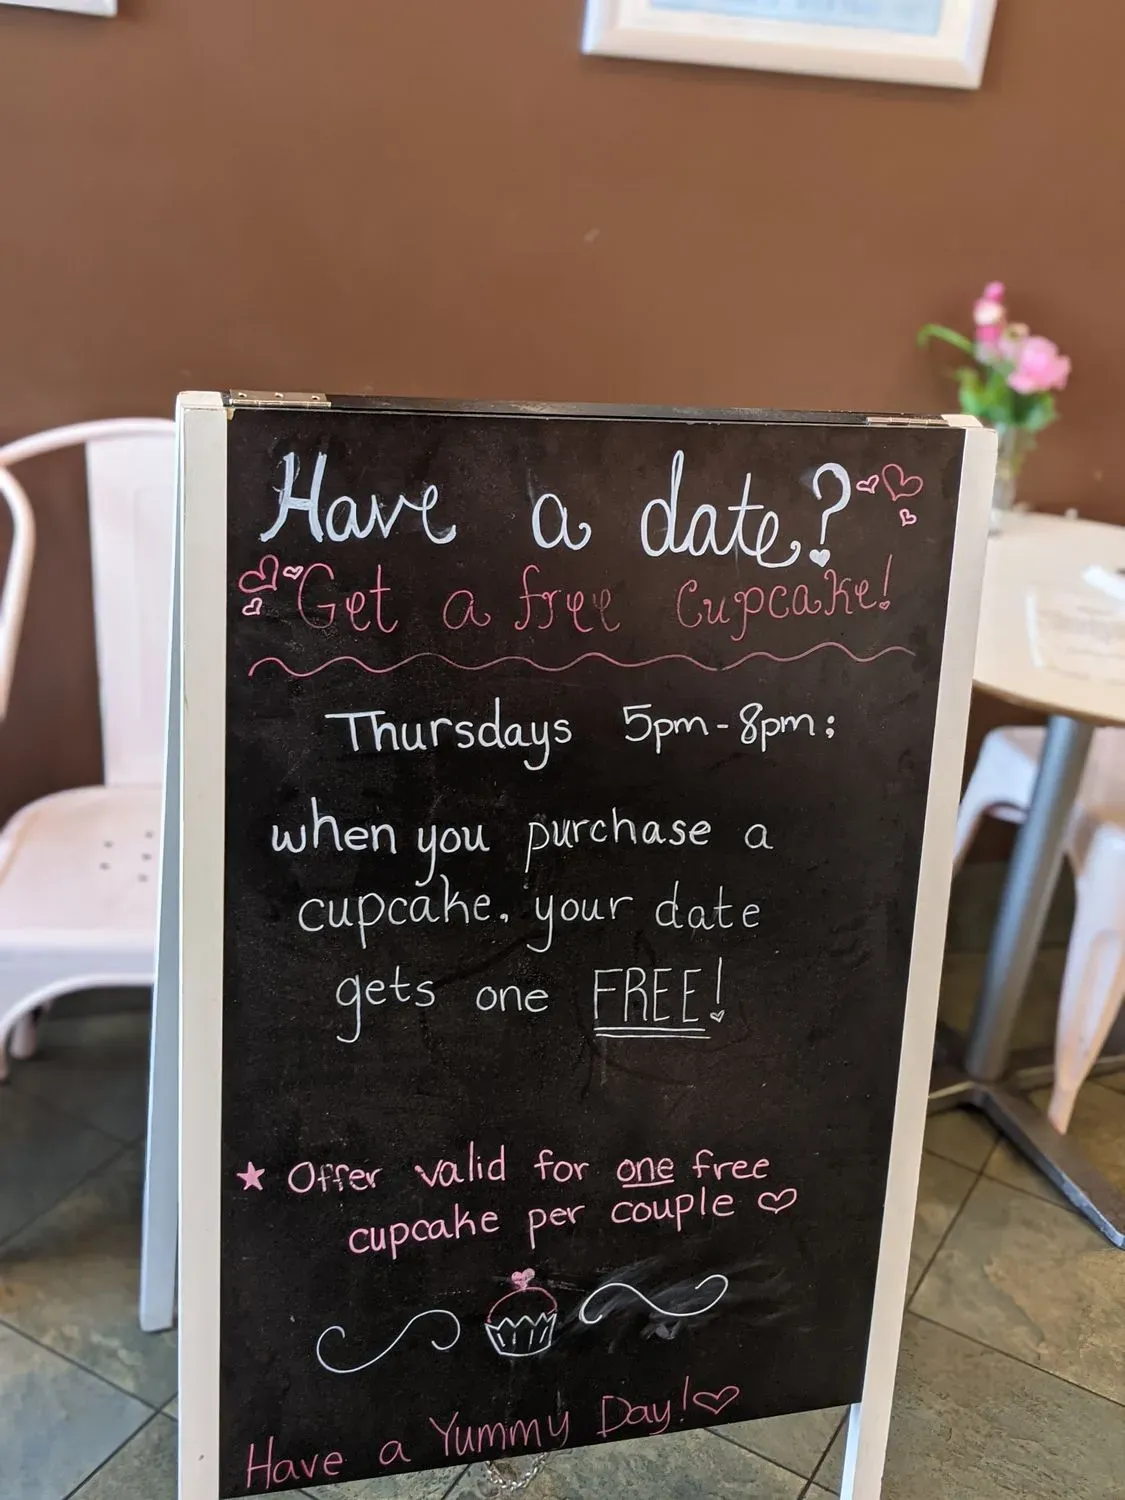 Have a date?
Get a free cupcake!
Thursdays 5pm-8pm:
when you purchase a
cupcake, your date
gets one FREE!
★ Offer valid for one free
cupcake per couple ♡
Have a Yummy Day! ♡